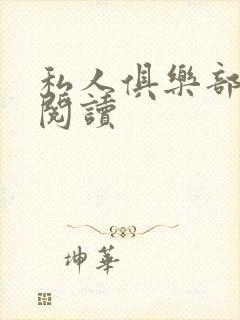 私人俱樂部
閱讀
坤華